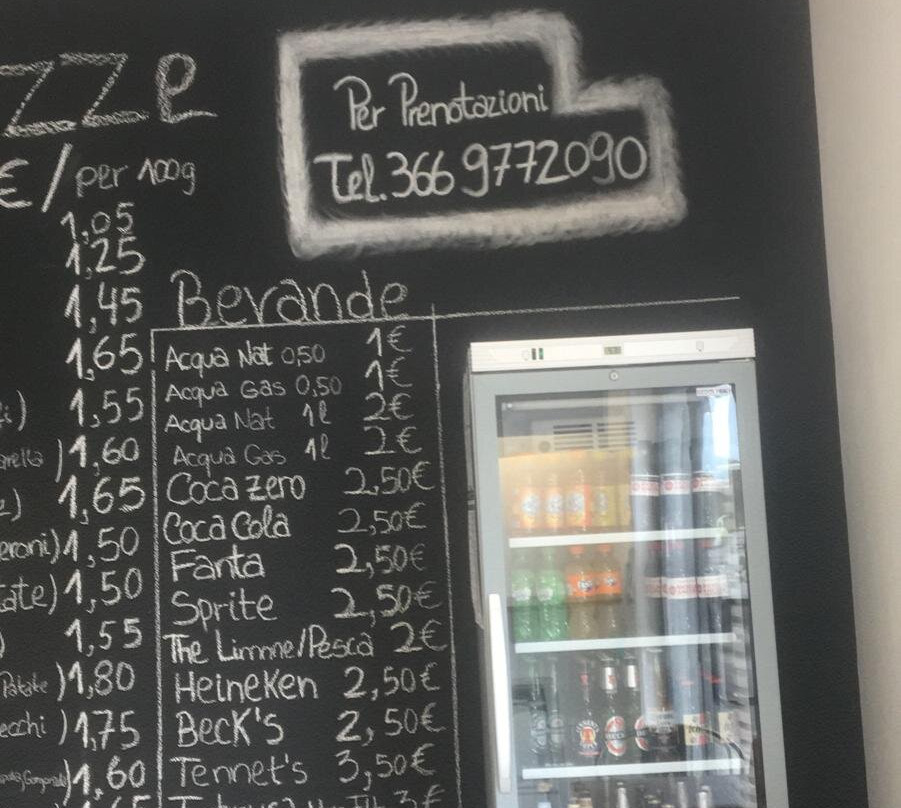 ZZE
Per Prenotazioni
Tel. 366 9772090
€/ per 100g
1,05
1,25
1,45
1,65
1,55
1,60
1,65
eroni) 1,50
tate) 1,50
) 1,55
Patate) 1,80
ecchi) 1,75
1,60
Bevande
Acqua Nat 0,50 1€
Acqua Gas 0,50 1€
Acqua Nat 1l 2€
Acqua Gas 1l 2€
Coca zero 2,50€
Coca Cola 2,50€
Fanta 2,50€
Sprite 2,50€
The Limone/Pesca 2€
Heineken 2,50€
Beck's 2,50€
Tennet's 3,50€
3€